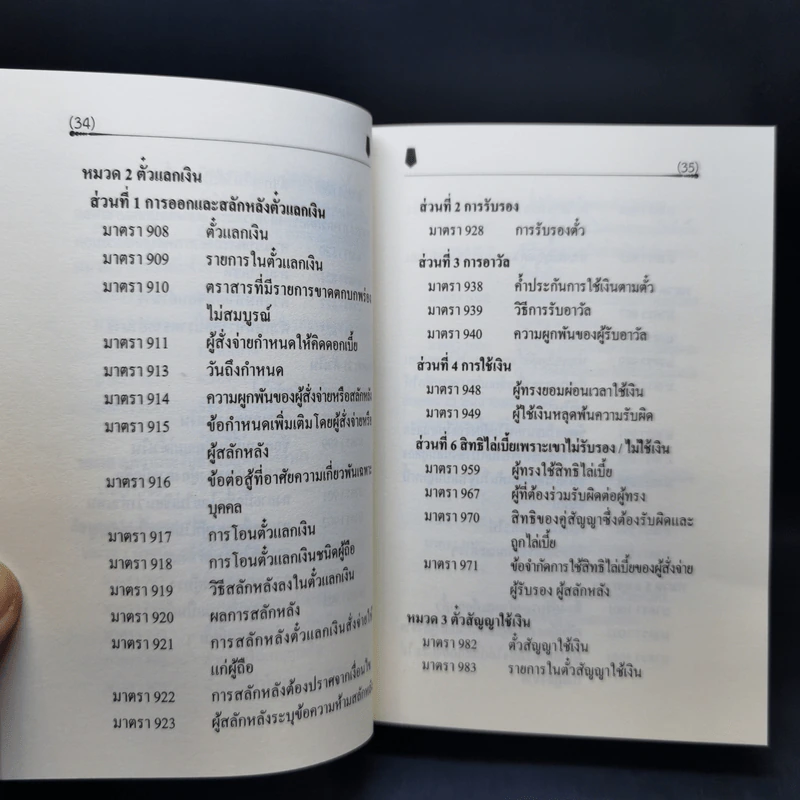 (34)
หมวด 2 ตั๋วแลกเงิน
ส่วนที่ 1 การออกและสลักหลังตั๋วแลกเงิน
มาตรา 908 ตั๋วแลกเงิน
มาตรา 909 รายการในตั๋วแลกเงิน
มาตรา 910 ตราสารที่มีรายการขาดตกบกพร่อง
ไม่สมบูรณ์
มาตรา 911 ผู้สั่งจ่ายกำหนดให้คิดดอกเบี้ย
มาตรา 913 วันถึงกำหนด
มาตรา 914 ความผูกพันของผู้สั่งจ่ายหรือสลักหลัง
มาตรา 915 ข้อกำหนดเพิ่มเติมโดยผู้สั่งจ่ายหรือ
ผู้สลักหลัง
มาตรา 916 ข้อต่อสู้ที่อาศัยความเกี่ยวพันเฉพาะ
บุคคล
มาตรา 917 การโอนตั๋วแลกเงิน
มาตรา 918 การโอนตั๋วแลกเงินชนิดผู้ถือ
มาตรา 919 วิธีสลักหลังลงในตั๋วแลกเงิน
มาตรา 920 ผลการสลักหลัง
มาตรา 921 การสลักหลังตั๋วแลกเงินสั่งจ่ายให้
แก่ผู้ถือ
มาตรา 922 การสลักหลังต้องปราศจากเงื่อนไข
มาตรา 923 ผู้สลักหลังระบุข้อความห้ามสลักหลัง
(35)
ส่วนที่ 2 การรับรอง
มาตรา 928 การรับรองตั๋ว
ส่วนที่ 3 การอาวัล
มาตรา 938 ค้ำประกันการใช้เงินตามตั๋ว
มาตรา 939 วิธีการรับอาวัล
มาตรา 940 ความผูกพันของผู้รับอาวัล
ส่วนที่ 4 การใช้เงิน
มาตรา 948 ผู้ทรงยอมผ่อนเวลาใช้เงิน
มาตรา 949 ผู้ใช้เงินหลุดพ้นความรับผิด
ส่วนที่ 6 สิทธิไล่เบี้ยเพราะเขาไม่รับรอง / ไม่ใช้เงิน
มาตรา 959 ผู้ทรงใช้สิทธิไล่เบี้ย
มาตรา 967 ผู้ที่ต้องร่วมรับผิดต่อผู้ทรง
มาตรา 970 สิทธิของคู่สัญญาซึ่งต้องรับผิดและ
ถูกไล่เบี้ย
มาตรา 971 ข้อจำกัดการใช้สิทธิไล่เบี้ยของผู้สั่งจ่าย
ผู้รับรอง ผู้สลักหลัง
หมวด 3 ตั๋วสัญญาใช้เงิน
มาตรา 982 ตั๋วสัญญาใช้เงิน
มาตรา 983 รายการในตั๋วสัญญาใช้เงิน